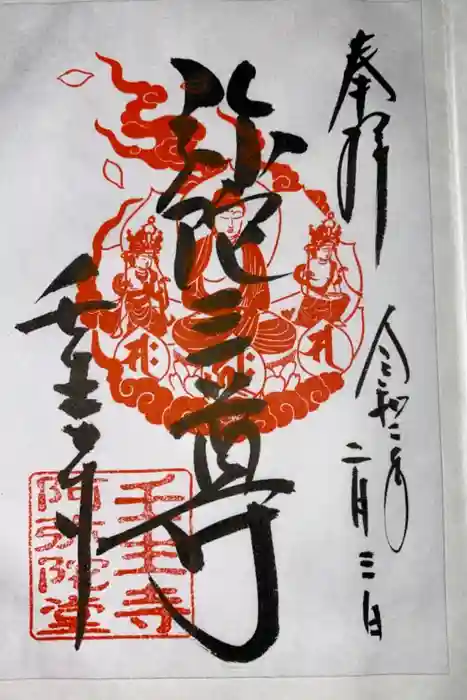 奉拝
令和二年
二月三日
弥陀三尊
壬生寺
壬生寺
阿弥陀堂